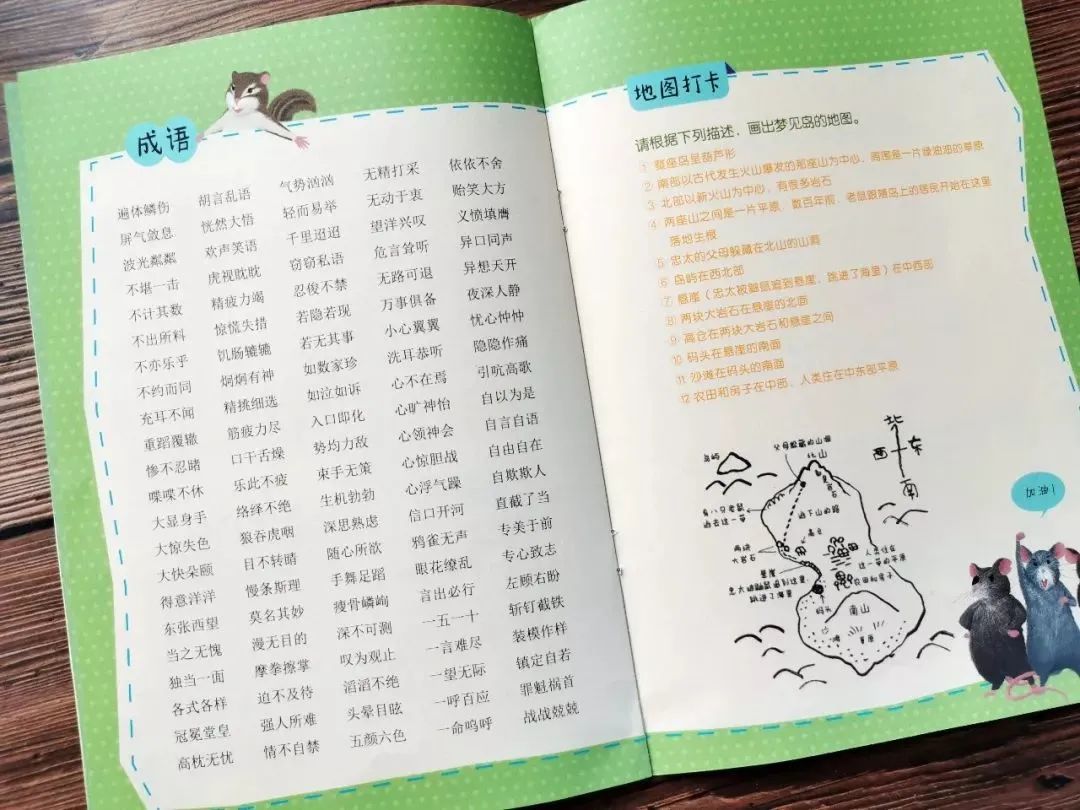 成语
遍体鳞伤 胡言乱语 气势汹汹 无精打采 依依不舍
屏气敛息 恍然大悟 轻而易举 无动于衷 贻笑大方
波光粼粼 欢声笑语 千里迢迢 望洋兴叹 义愤填膺
不堪一击 虎视眈眈 窃窃私语 危言耸听 异口同声
不计其数 精疲力竭 忍俊不禁 无路可退 异想天开
不出所料 惊慌失措 若隐若现 万事俱备 夜深人静
不亦乐乎 饥肠辘辘 若无其事 小心翼翼 忧心忡忡
不约而同 炯炯有神 如数家珍 洗耳恭听 隐隐作痛
充耳不闻 精挑细选 如泣如诉 心不在焉 引吭高歌
重蹈覆辙 筋疲力尽 入口即化 心旷神怡 自以为是
惨不忍睹 口干舌燥 势均力敌 心领神会 自言自语
喋喋不休 乐此不疲 束手无策 心惊胆战 自由自在
大显身手 络绎不绝 生机勃勃 心浮气躁 自欺欺人
大惊失色 狼吞虎咽 深思熟虑 信口开河 直截了当
大快朵颐 目不转睛 随心所欲 鸦雀无声 专美于前
得意洋洋 慢条斯理 手舞足蹈 眼花缭乱 专心致志
东张西望 莫名其妙 瘦骨嶙峋 言出必行 左顾右盼
当之无愧 漫无目的 深不可测 一五一十 斩钉截铁
独当一面 摩拳擦掌 叹为观止 一言难尽 装模作样
各式各样 迫不及待 滔滔不绝 一望无际 镇定自若
冠冕堂皇 强人所难 头晕目眩 一呼百应 罪魁祸首
高枕无忧 情不自禁 五颜六色 一命呜呼 战战兢兢
地图打卡
请根据下列描述，画出梦见岛的地图。
① 整座岛呈葫芦形
② 南部以古代发生火山爆发的那座山为中心，周围是一片绿油油的草原
③ 北部以新火山为中心，有很多岩石
④ 两座山之间是一片平原，数百年前，老鼠跟随岛上的居民开始在这里
落地生根
⑤ 忠太的父母躲藏在北山的山洞
⑥ 岛屿在西北部
⑦ 悬崖（忠太被鼬鼠追到悬崖，跳进了海里）在中西部
⑧ 两块大岩石在悬崖的北面
⑨ 高仓在两块大岩石和悬崖之间
⑩ 码头在悬崖的南面
11 沙滩在码头的南面
12 农田和房子在中部，人类住在中东部平原
北
西 东
南
父母躲藏的山洞
北山
岛屿
岩石
逃下山的路
两块
大岩石
高仓
人类住在
这一带的平原
悬崖
农田和房子
忠太被鼬鼠追到这里,
跳进了海里
码头
南山
草原